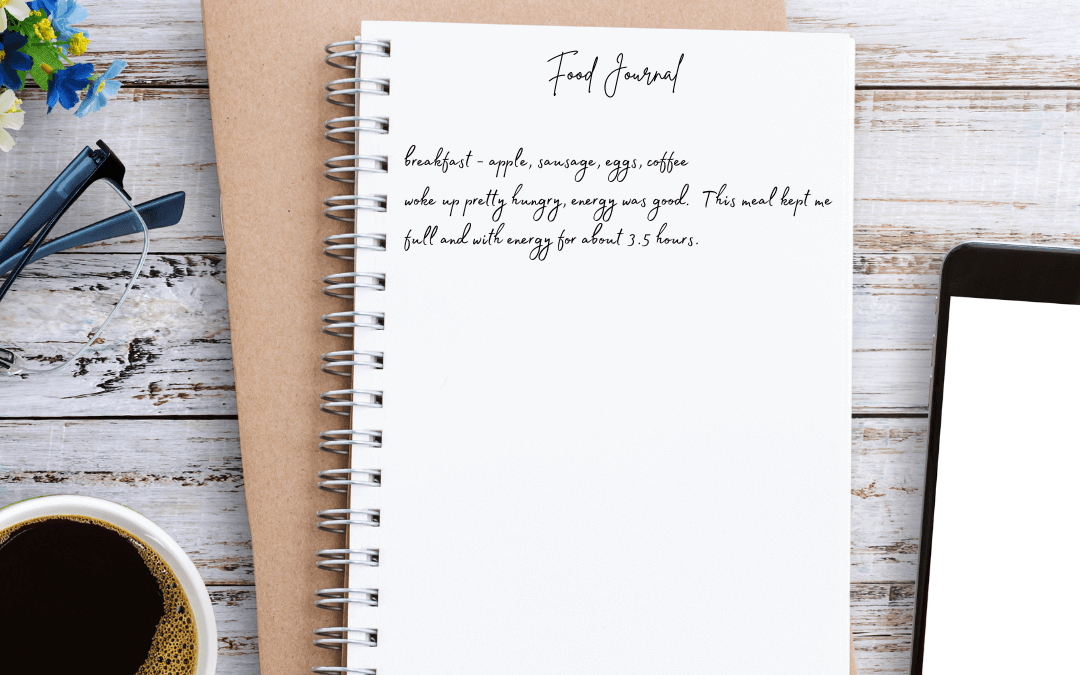 Food Journal
breakfast - apple, sausage, eggs, coffee
woke up pretty hungry, energy was good. This meal kept me
full and with energy for about 3.5 hours.